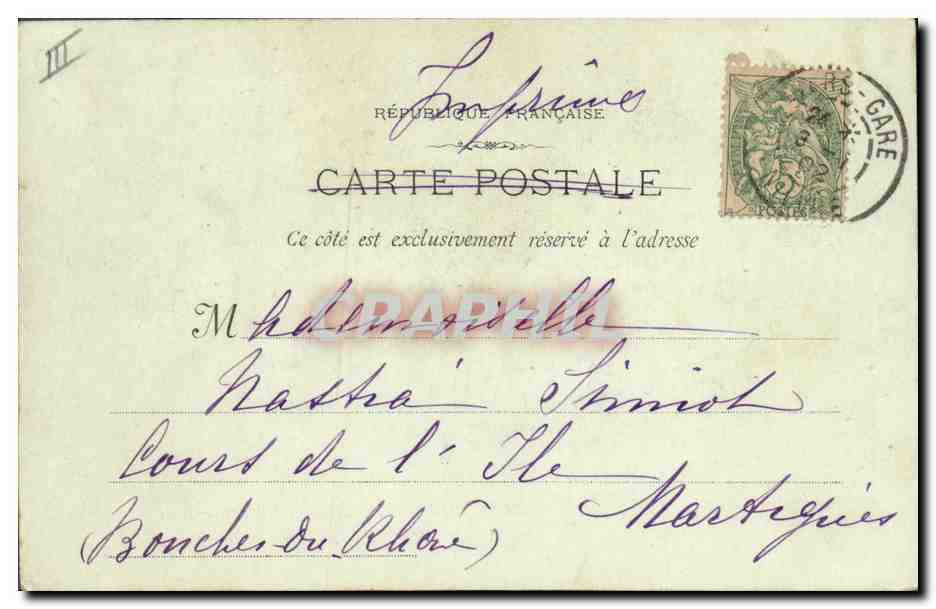 III
Imprimés
RÉPUBLIQUE FRANÇAISE
CARTE POSTALE
Ce côté est exclusivement réservé à l'adresse
RS-GARE
5
POSTES
CPAPHIL
Mademoiselle
Simiot
Cours de l'Ile
Martigues
(Bouches-du-Rhône)